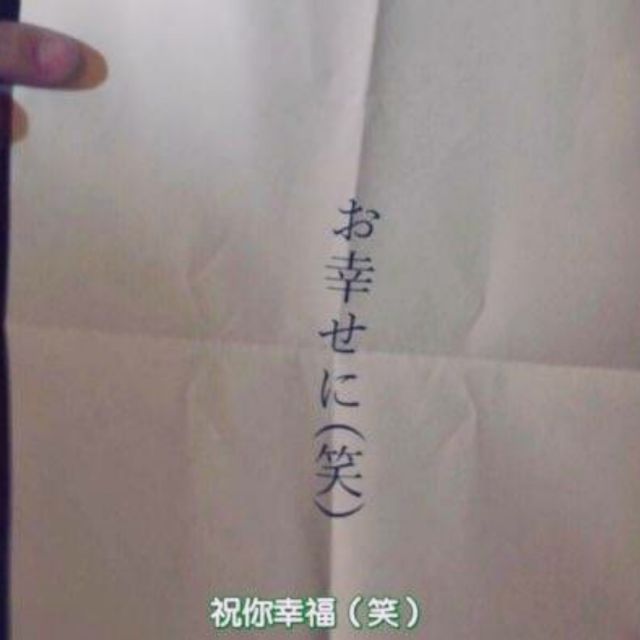 お幸せに(笑)
祝你幸福（笑）